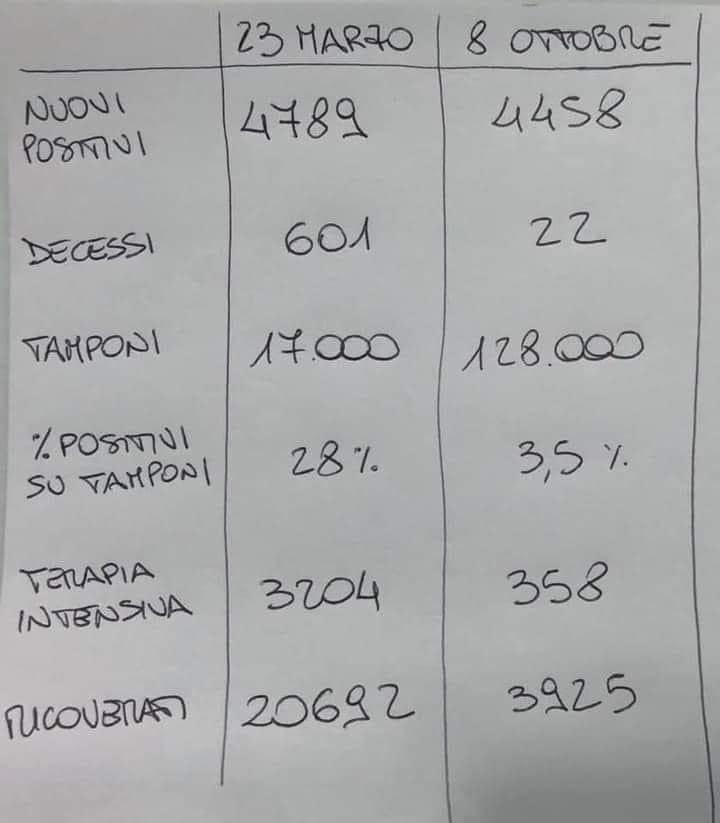 23 MARZO 8 OTTOBRE
NUOVI
POSITIVI 4789 4458
DECESSI 601 22
TAMPONI 17.000 128.000
% POSITIVI
SU TAMPONI 28% 3,5 %
TERAPIA
INTENSIVA 3204 358
RICOVERATI 20692 3925